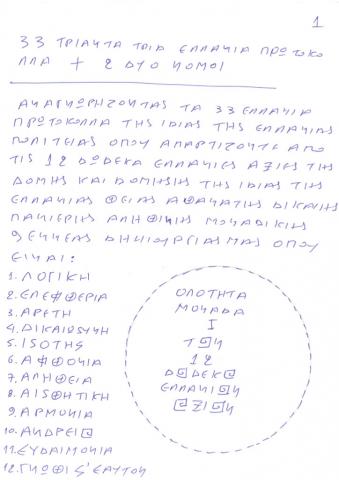 1
33 ΤΡΙΑΝΤΑ ΤΡΙΑ ΕΛΛΑΝΙΑ ΠΡΩΤΟΚΟ
ΛΛΑ + 2 ΔΥΟ ΝΟΜΟΙ
ΑΝΑΓΝΩΡΗΖΟΝΤΑΣ ΤΑ 33 ΕΛΛΑΝΙΑ
ΠΡΩΤΟΚΟΛΛΑ ΤΗΣ ΙΔΙΑΣ ΤΗΣ ΕΛΛΑΝΙΑΣ
ΠΟΛΙΤΕΙΑΣ ΟΠΟΥ ΑΠΑΡΤΙΖΟΝΤΕ ΑΠΟ
ΤΙΣ 12 ΔΩΔΕΚΑ ΕΛΛΑΝΙΕΣ ΑΞΙΕΣ ΤΗΣ
ΔΟΜΗΣ ΚΑΙ ΔΟΜΗΣΗΣ ΤΗΣ ΙΔΙΑΣ ΤΗΣ
ΕΛΛΑΝΙΑΣ ΘΕΙΑΣ ΑΘΑΝΑΤΗΣ ΔΙΚΑΙΗΣ
ΠΑΝΙΕΡΗΣ ΑΛΗΘΙΝΗΣ ΜΟΝΑΔΙΚΗΣ
ΓΕΝΝΕΑΣ ΔΗΜΙΟΥΡΓΕΙΑΣ ΜΑΣ ΟΠΟΥ
ΕΙΝΑΙ:
1. ΛΟΓΙΚΗ
2. ΕΛΕΦΘΕΡΙΑ
3. ΑΡΕΤΗ
4. ΔΙΚΑΙΩΣΥΝΗ
5. ΙΣΟΤΗΣ
6. ΑΦΘΟΝΙΑ
7. ΑΛΗΘΕΙΑ
8. ΑΙΣΘΗΤΙΚΗ
9. ΑΡΜΟΝΙΑ
10. ΑΝΔΡΕΙΑ
11. ΕΥΔΑΙΜΟΝΙΑ
12. ΓΝΩΘΙ Σ'ΕΑΥΤΟΝ
ΟΛΟΤΗΤΑ
ΜΟΝΑΔΑ
Ι
ΤΩΝ
12
ΔΩΔΕΚΑ
ΕΛΛΑΝΙΩΝ
ΑΞΙΩΝ